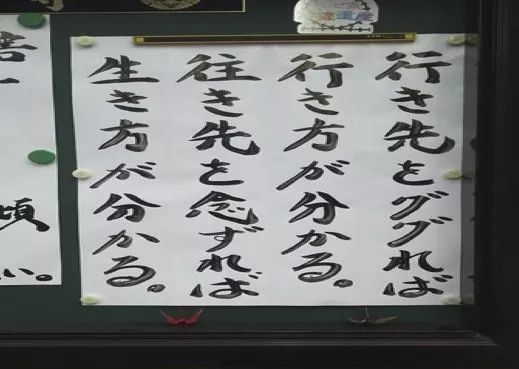 行き先をググれば
行き方が分かる。
往き先を念ずれば
生き方が分かる。
頃
い。